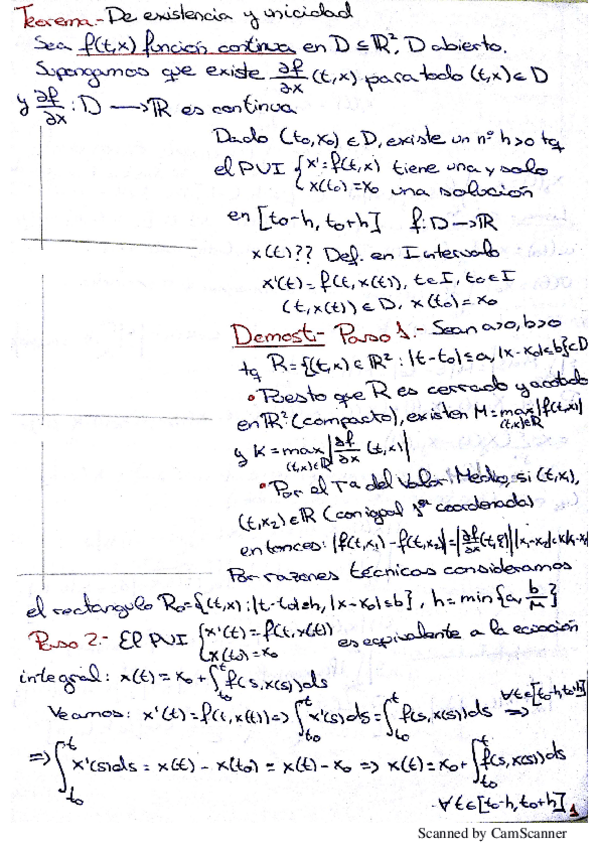 Teorema.- De existencia y unicidad
Sea f(t,x) función continua en D ⊆ ℝ², D abierto.
Supongamos que existe ∂f/∂x (t,x) para todo (t,x) ∈ D
y ∂f/∂x : D → ℝ es continua
Dado (t₀,x₀) ∈ D, existe un nº h>0 tq
el PVI {x'=f(t,x) tiene una y solo
{x(t₀)=x₀ una solución
en [t₀-h, t₀+h] f: D → ℝ
x(t)?? Def. en I intervalo
x'(t) = f(t, x(t)), t∈I, t₀∈I
(t, x(t)) ∈ D, x(t₀) = x₀
Demost.- Paso 1.- Sean a>0, b>0
tq R = {(t,x) ∈ ℝ² : |t-t₀| ≤ a, |x-x₀| ≤ b} ⊂ D
• Puesto que R es cerrado y acotado
en ℝ² (compacto), existen M = max |f(t,x)|
(t,x)∈R
y K = max |∂f/∂x (t,x)|
(t,x)∈R
• Por el Tª del Valor Medio, si (t,x₁),
(t,x₂) ∈ R (con igual 1ª coordenada)
entonces: |f(t,x₁) - f(t,x₂)| = |∂f/∂x (t,ξ)| |x₁-x₂| ≤ K|x₁-x₂|
Por razones técnicas consideramos
el rectangulo R₀ = {(t,x) : |t-t₀| ≤ h, |x-x₀| ≤ b}, h = min {a, b/M}
Paso 2.- El PVI {x'(t) = f(t, x(t)) es equivalente a la ecuación
{x(t₀) = x₀
integral: x(t) = x₀ + ∫ₜ₀ᵗ f(s, x(s)) ds ∀t∈[t₀-h, t₀+h]
Veamos: x'(t) = f(t, x(t)) => ∫ₜ₀ᵗ x'(s) ds = ∫ₜ₀ᵗ f(s, x(s)) ds =>
=> ∫ₜ₀ᵗ x'(s) ds = x(t) - x(t₀) = x(t) - x₀ => x(t) = x₀ + ∫ₜ₀ᵗ f(s, x(s)) ds
∀t∈[t₀-h, t₀+h] 1
Scanned by CamScanner